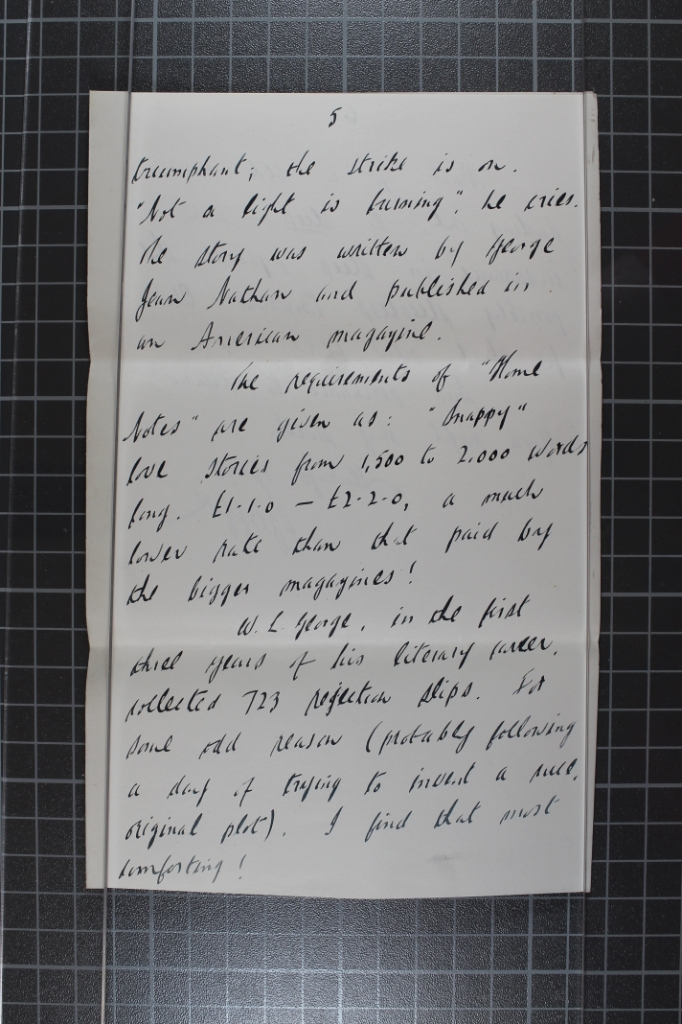 5
triumphant; the strike is on.
"Not a light is burning", he cries.
The story was written by George
Jean Nathan and published in
an American magazine.
The requirements of "Home
Notes" are given as: "Snappy"
love stories from 1,500 to 2,000 words
long. £1-1-0 – £2-2-0, a much
lower rate than that paid by
the bigger magazines!
W. L. George, in the first
three years of his literary career,
collected 723 rejection slips. For
some odd reason (probably following
a day of trying to invent a nice,
original plot). I find that most
comforting!